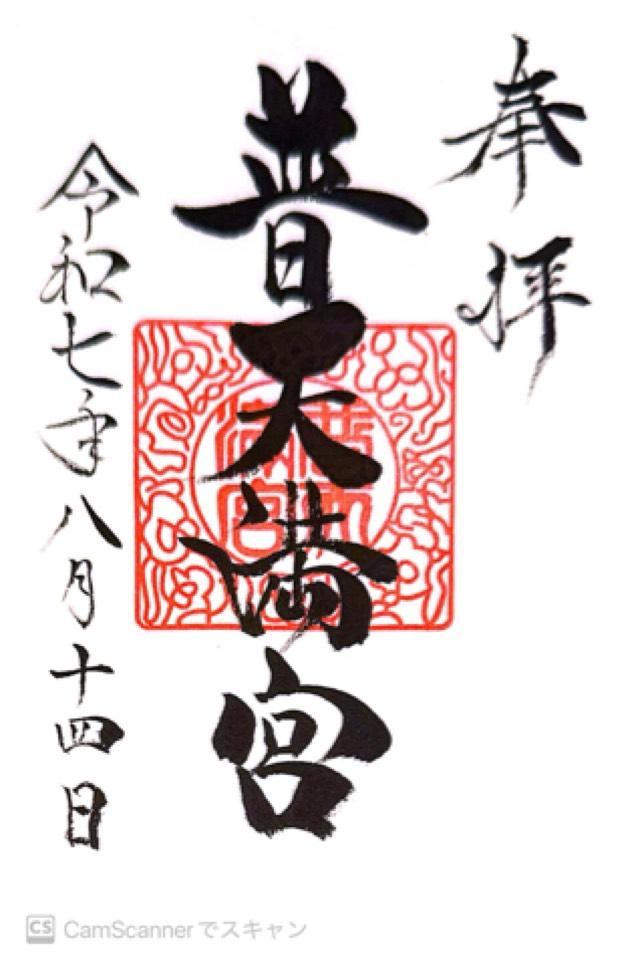 奉拝
普天満宮
令和七年八月十四日
CS CamScannerでスキャン